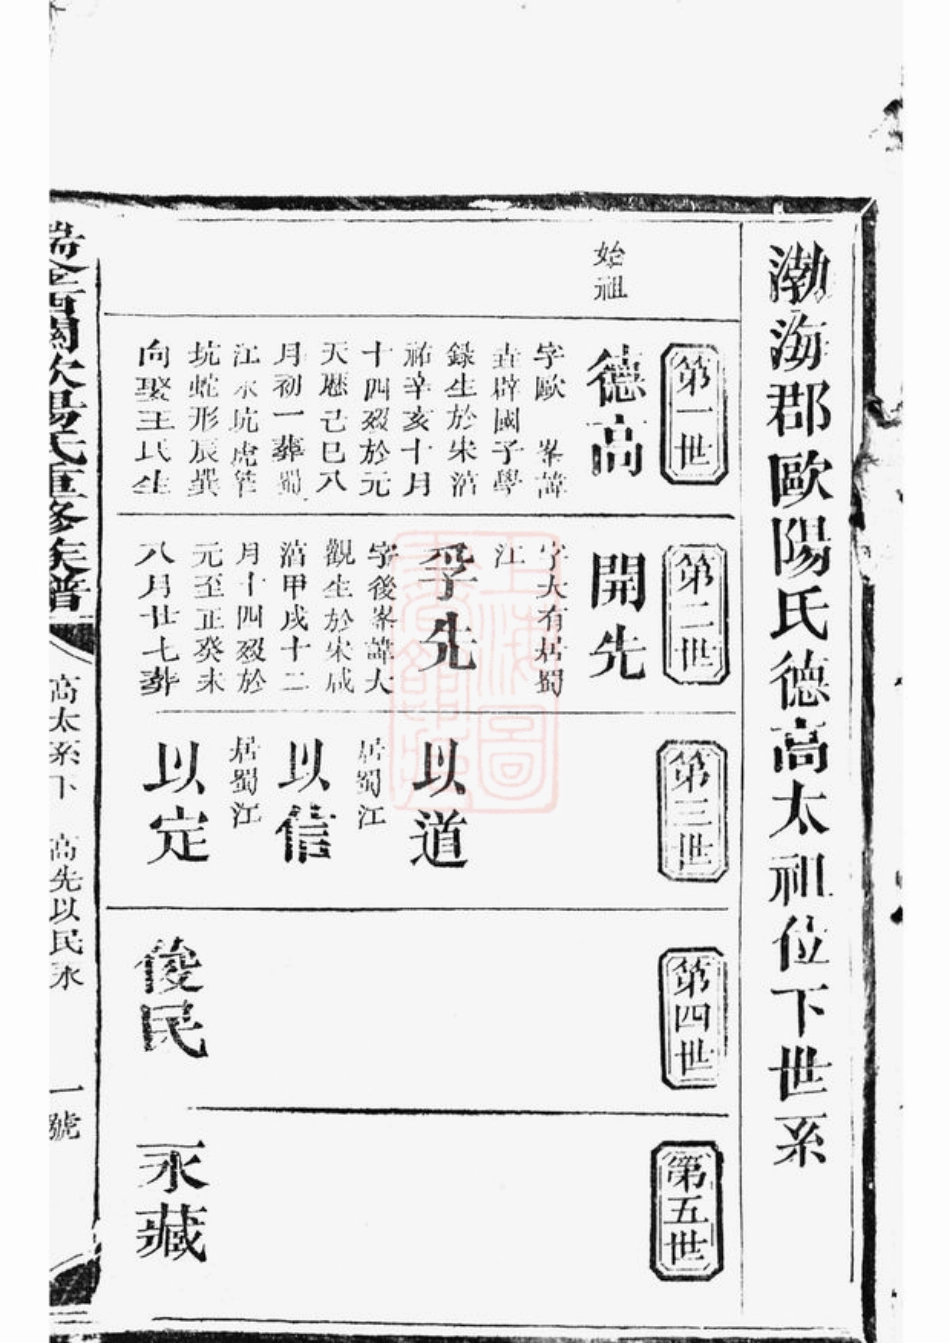 渤海郡歐陽氏德高太祖位下世系
第一世
第二世
第三世
第四世
第五世
始祖
德高
字歐峯諱
壵辟國子學
錄生於宋湻
祐辛亥十月
十四歿於元
天厯己巳八
月初一葬蜀
江水坑虎笁
坑蛇形辰巽
向娶王氏生
開先
字大有居蜀
江
孚先
字後峯諱大
觀生於宋咸
湻甲戌十二
月十四歿於
元至正癸未
八月廿七葬
以道
居蜀江
以信
居蜀江
以定
俊民
永藏
歐陽氏重修族譜
高太系下
高先以民永
一號
上海圖